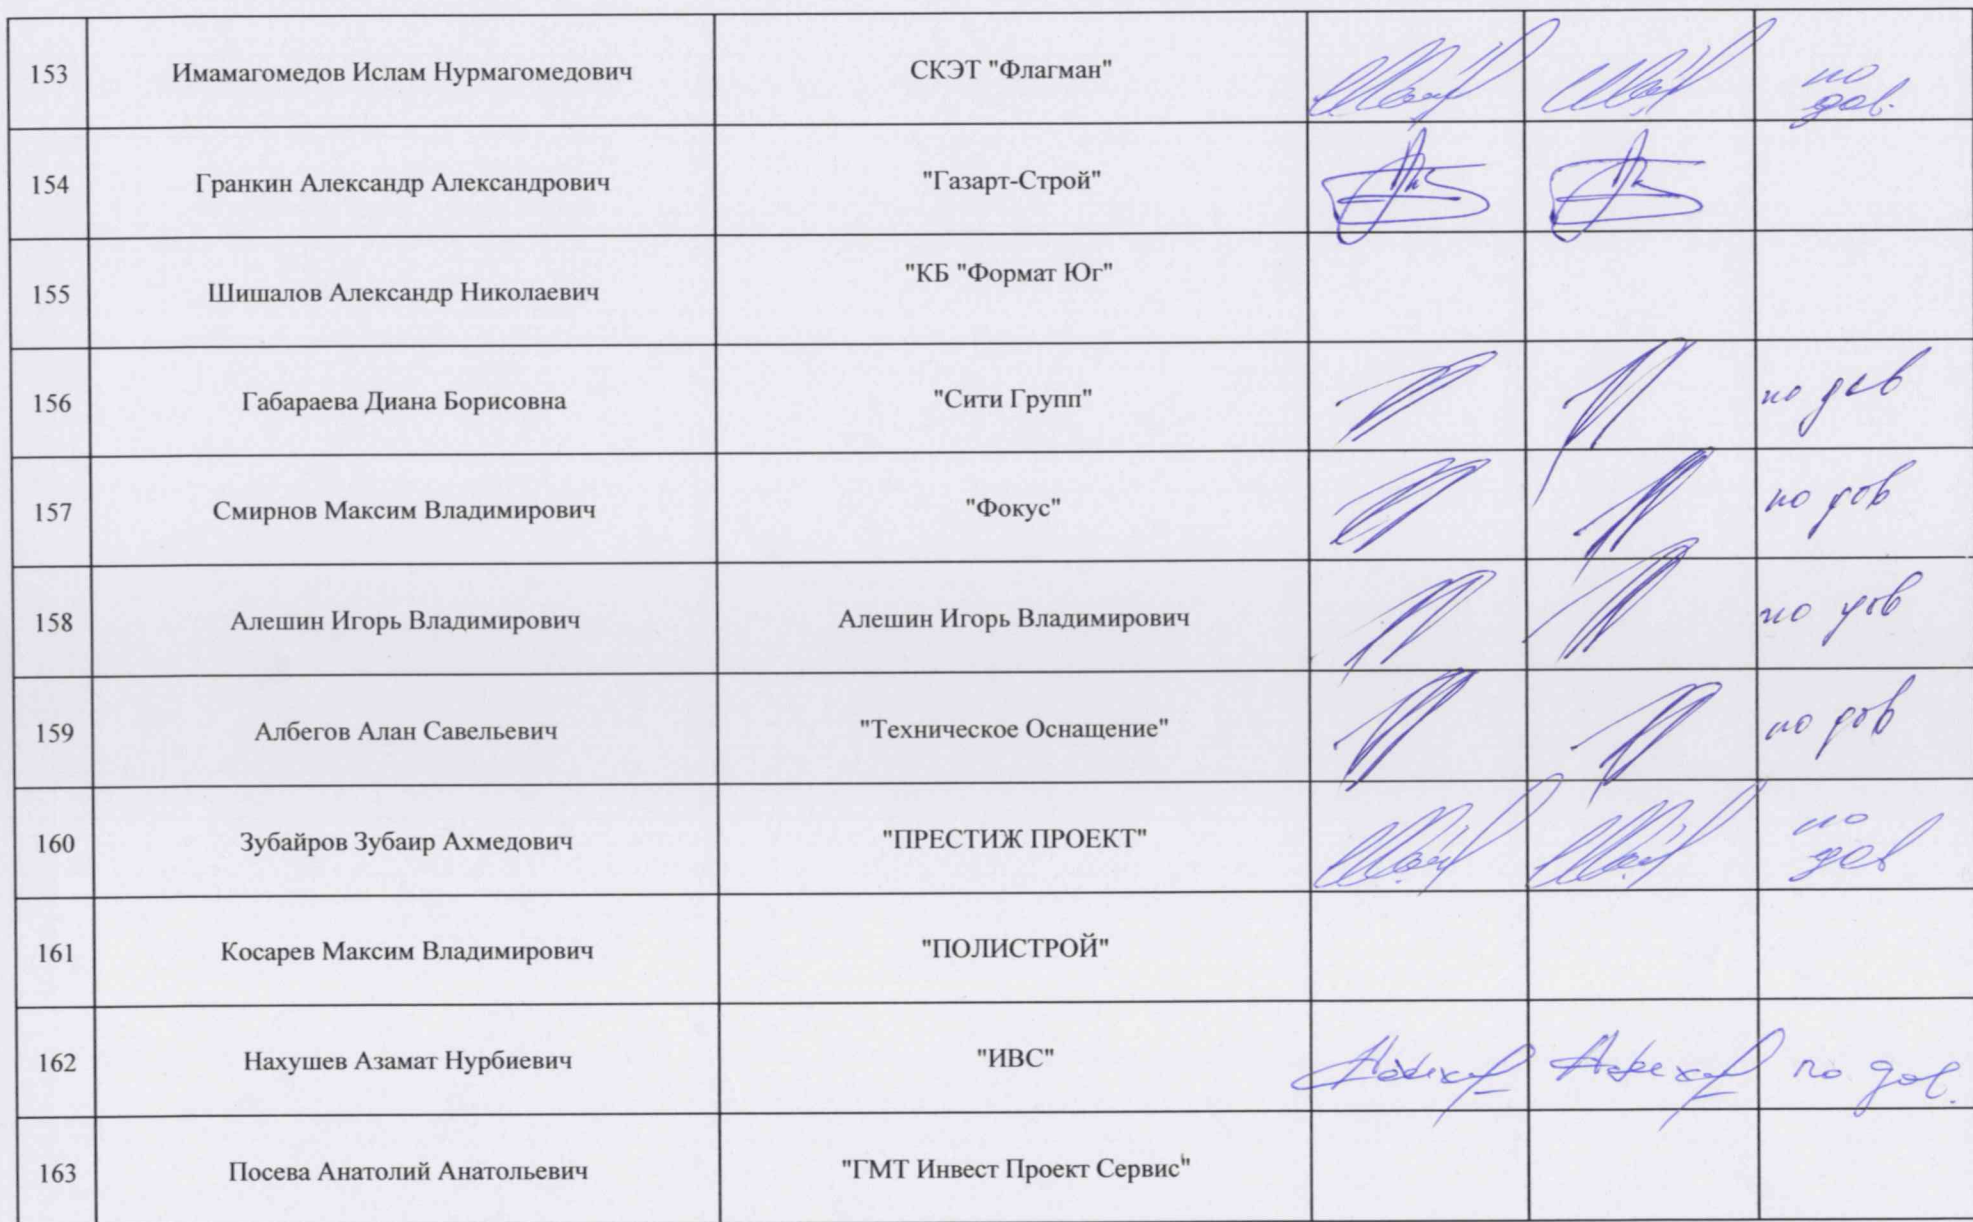 153 Имамагомедов Ислам Нурмагомедович СКЭТ "Флагман" по
дов.
154 Гранкин Александр Александрович "Газарт-Строй"
155 Шишалов Александр Николаевич "КБ "Формат Юг"
156 Габараева Диана Борисовна "Сити Групп" по дов
157 Смирнов Максим Владимирович "Фокус" по дов
158 Алешин Игорь Владимирович Алешин Игорь Владимирович по дов
159 Албегов Алан Савельевич "Техническое Оснащение" по дов
160 Зубайров Зубаир Ахмедович "ПРЕСТИЖ ПРОЕКТ" по
дов
161 Косарев Максим Владимирович "ПОЛИСТРОЙ"
162 Нахушев Азамат Нурбиевич "ИВС" по дов.
163 Посева Анатолий Анатольевич "ГМТ Инвест Проект Сервис"